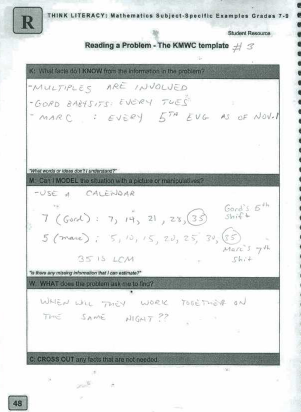 R
THINK LITERACY: Mathematics Subject-Specific Examples Grades 7-9
Student Resource
Reading a Problem - The KMWC template # 3
K: What facts do I KNOW from the information in the problem?
-MULTIPLES ARE INVOLVED
-GORD BABYSITS: EVERY TUES
- MARC : EVERY 5TH EVG AS OF NOV.1
*What words or ideas don't I understand?*
M: Can I MODEL the situation with a picture or manipulatives?
-USE A CALENDAR
Gord's 5th
shift
7 (Gord) : 7, 14, 21, 28, 35
5 (Marc) : 5, 10, 15, 20, 25, 30, 35
Marc's 7th
shift
35 IS LCM
*Is there any missing information that I can estimate?*
W: WHAT does the problem ask me to find?
WHEN WILL THEY WORK TOGETHER ON
THE SAME NIGHT??
C: CROSS OUT any facts that are not needed.
48